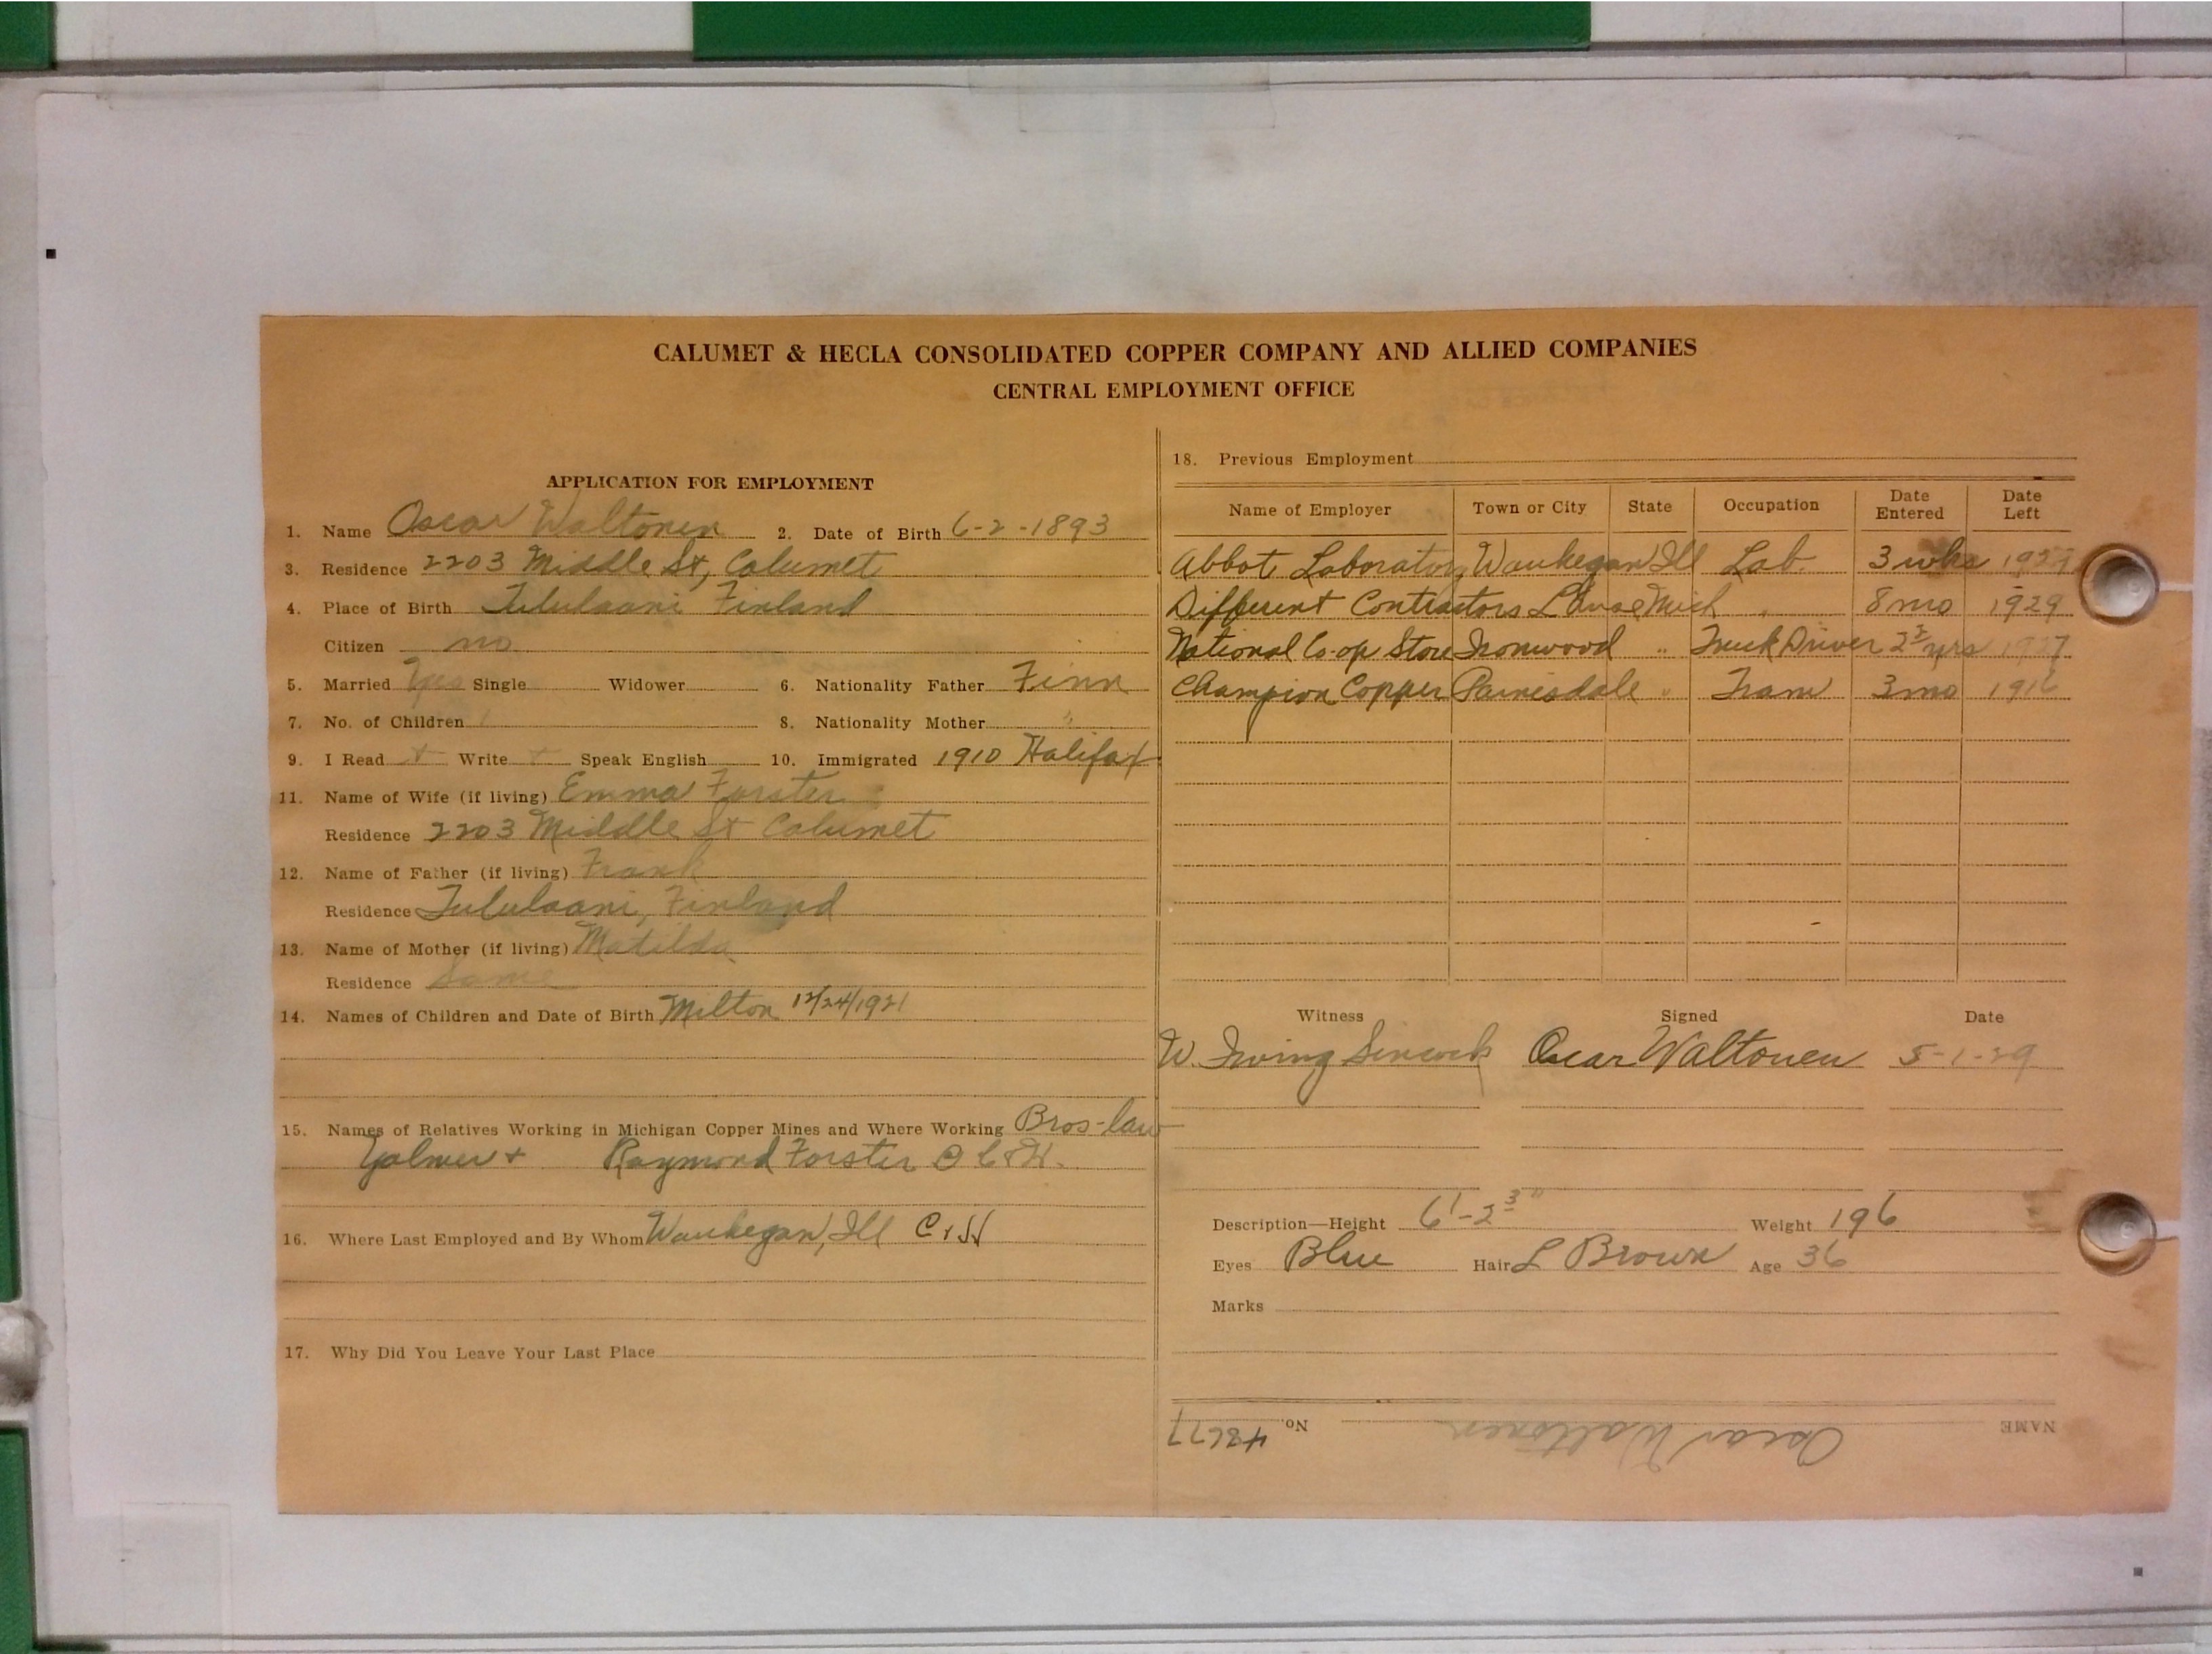 CALUMET & HECLA CONSOLIDATED COPPER COMPANY AND ALLIED COMPANIES
CENTRAL EMPLOYMENT OFFICE
APPLICATION FOR EMPLOYMENT
1. Name Oscar Waltonen 2. Date of Birth 6-2-1893
3. Residence 2203 Middle St, Calumet
4. Place of Birth Tululaani Finland
Citizen no
5. Married Yes Single Widower 6. Nationality Father Finn
7. No. of Children 1 8. Nationality Mother "
9. I Read + Write + Speak English 10. Immigrated 1910 Halifax
11. Name of Wife (if living) Emma Forster
Residence 2203 Middle St Calumet
12. Name of Father (if living) Frank
Residence Tululaani, Finland
13. Name of Mother (if living) Matilda
Residence Same
14. Names of Children and Date of Birth Milton 12/24/1921
15. Names of Relatives Working in Michigan Copper Mines and Where Working Bros-law
Yalmer + Raymond Forster C&H.
16. Where Last Employed and By Whom Waukegan, Ill C+H
17. Why Did You Leave Your Last Place
18. Previous Employment
Name of Employer Town or City State Occupation Date Entered Date Left
Abbot Laboratory Waukegan Ill Lab. 3 wks
Different Contractors L'Anse Mich " 8 mo 1929
National Co-op Store Ironwood " Truck Driver 2 yrs 1927
Champion Copper Painesdale " Tram 3 mo 1916
Witness Signed Date
W. Irving Sincock Oscar Waltonen 5-1-29
Description—Height 6'-2 3" Weight 196
Eyes Blue Hair L Brown Age 36
Marks
NAME Oscar Waltonen No. 48677